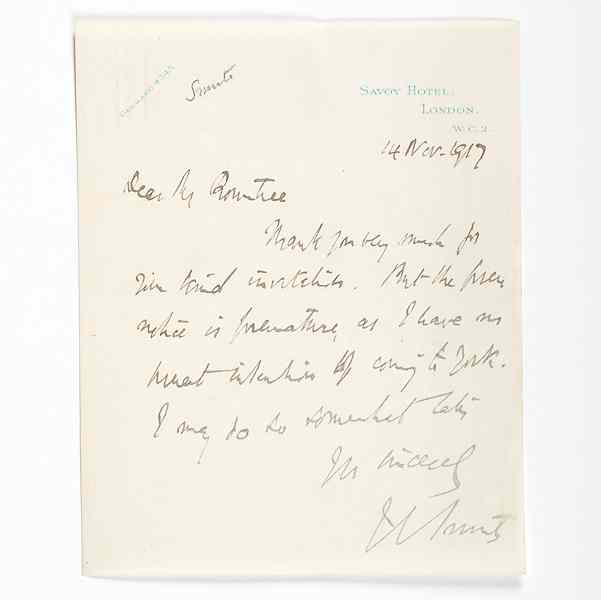 GERRARD 4343
Smuts
SAVOY HOTEL,
LONDON.
W.C.2.
14 Nov. 1917
Dear Mr Rowntree
Thank you very much for
your kind invitation. But the press
notice is premature, as I have no
present intention of coming to York.
I may do so somewhat later
Yrs sincerely
J C Smuts